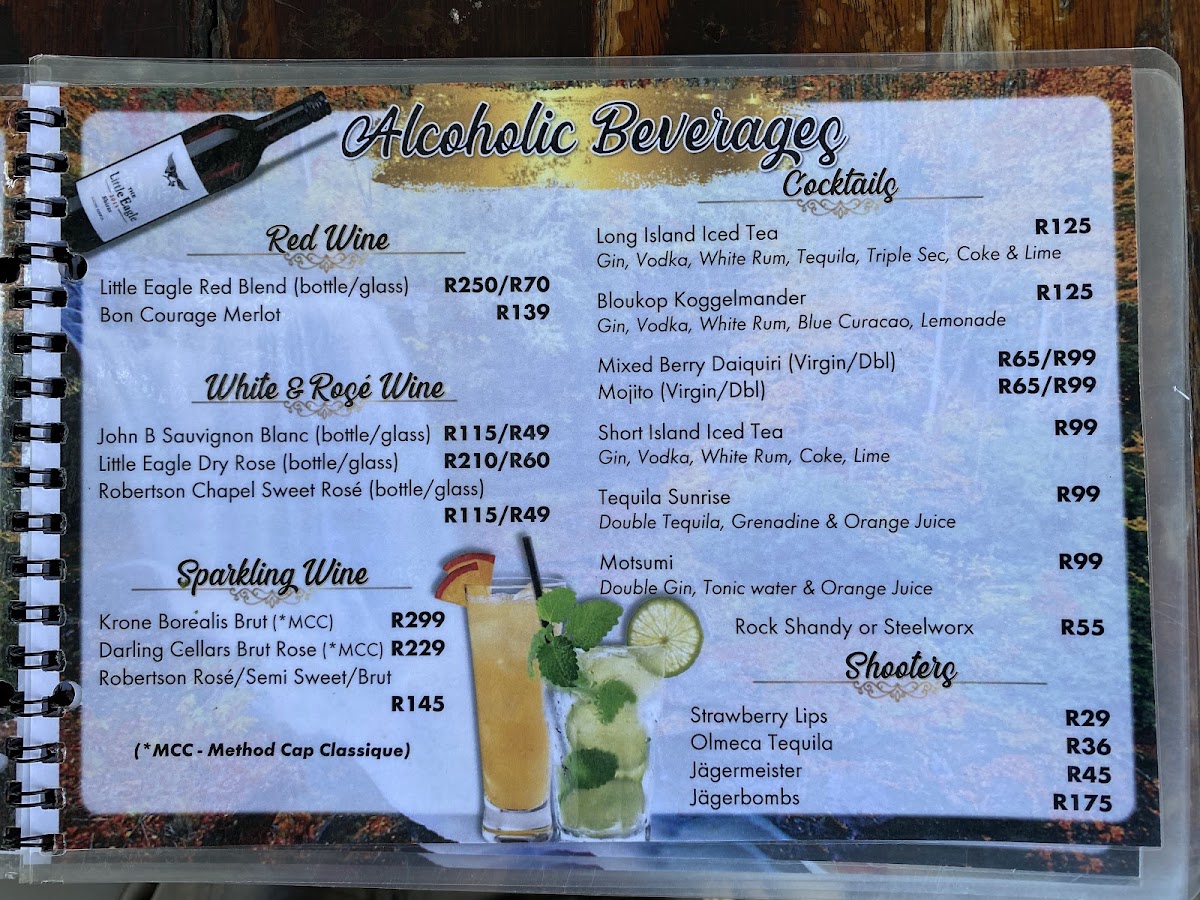 Alcoholic Beverages
THE
Little Eagle
2011
Shiraz
Red Wine
Little Eagle Red Blend (bottle/glass) R250/R70
Bon Courage Merlot R139
White & Rosé Wine
John B Sauvignon Blanc (bottle/glass) R115/R49
Little Eagle Dry Rose (bottle/glass) R210/R60
Robertson Chapel Sweet Rosé (bottle/glass)
R115/R49
Sparkling Wine
Krone Borealis Brut (*MCC) R299
Darling Cellars Brut Rose (*MCC) R229
Robertson Rosé/Semi Sweet/Brut
R145
(*MCC - Method Cap Classique)
Cocktails
Long Island Iced Tea R125
Gin, Vodka, White Rum, Tequila, Triple Sec, Coke & Lime
Bloukop Koggelmander R125
Gin, Vodka, White Rum, Blue Curacao, Lemonade
Mixed Berry Daiquiri (Virgin/Dbl) R65/R99
Mojito (Virgin/Dbl) R65/R99
Short Island Iced Tea R99
Gin, Vodka, White Rum, Coke, Lime
Tequila Sunrise R99
Double Tequila, Grenadine & Orange Juice
Motsumi R99
Double Gin, Tonic water & Orange Juice
Rock Shandy or Steelworx R55
Shooters
Strawberry Lips R29
Olmeca Tequila R36
Jägermeister R45
Jägerbombs R175